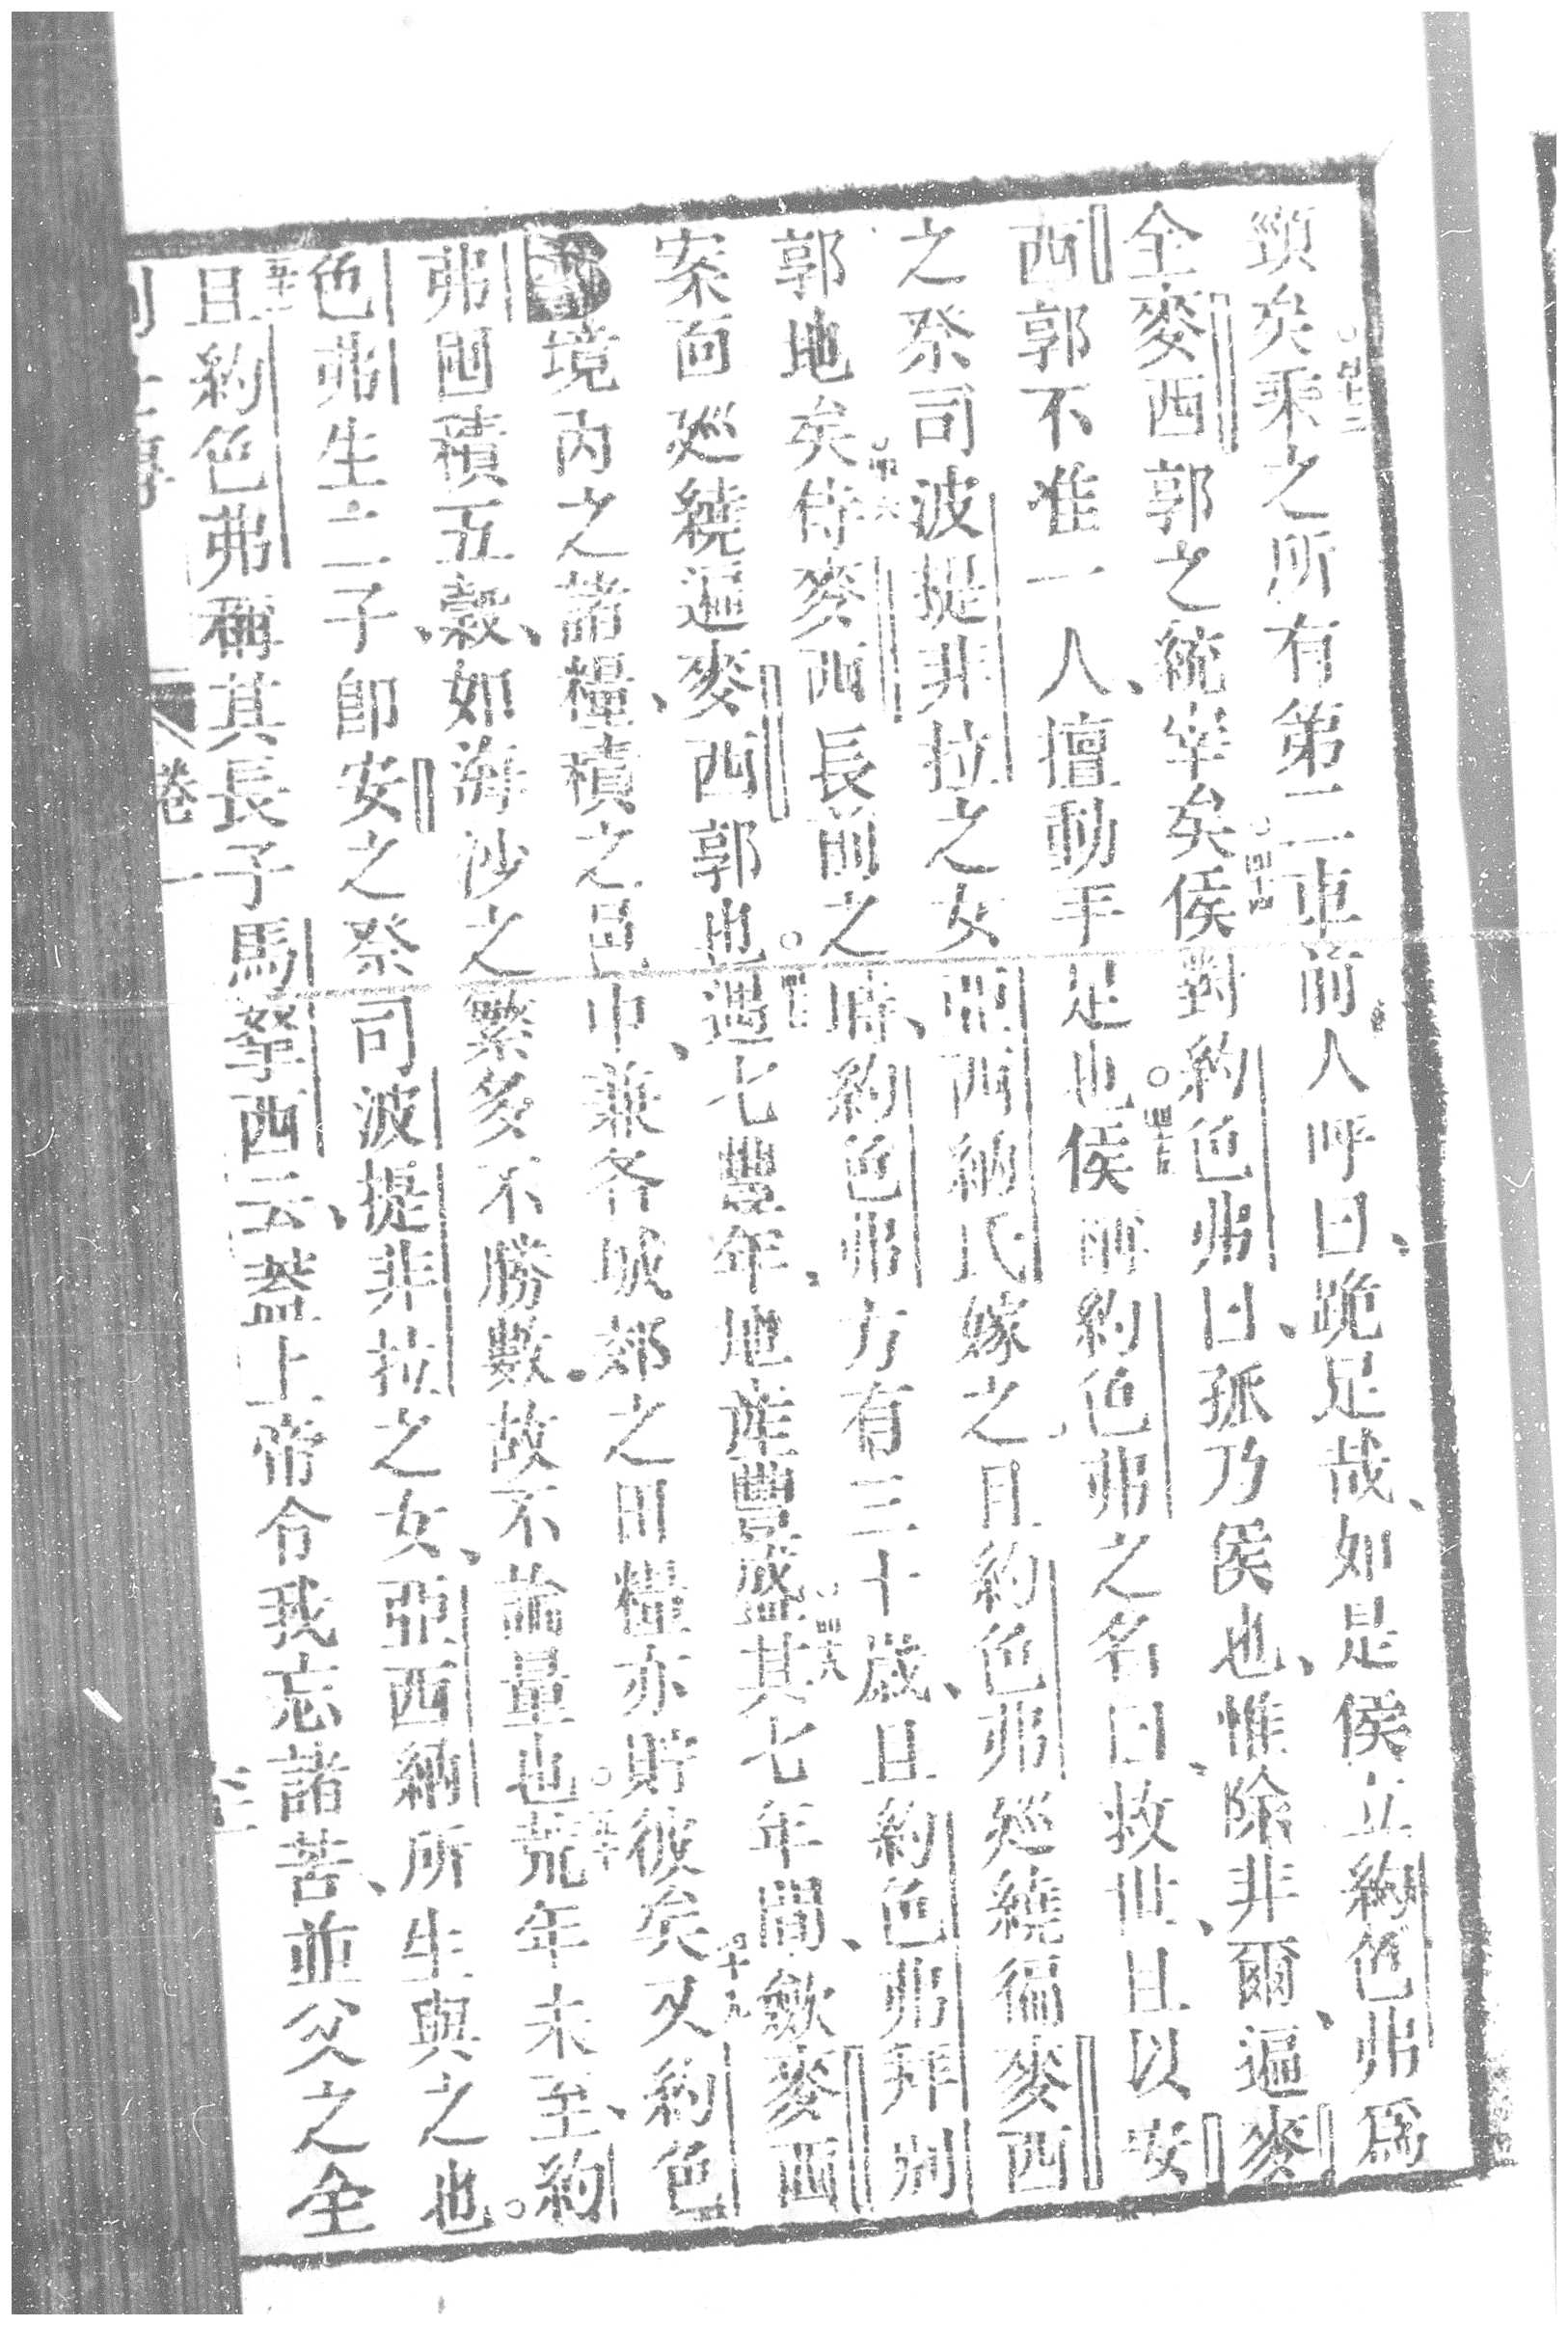 頸矣乘之所有第二車前人呼曰、跪足哉、如是侯立約色弗爲
全麥西郭之統宰矣侯對約色弗曰、孤乃侯也、惟除非爾、遍麥
西郭不准一人、擅動手足也侯稱約色弗之名曰、救世、且以安
之祭司波提非拉之女亞西納氏嫁之、且約色弗廵繞徧麥西
郭地矣侍麥西長前之時、約色弗方有三十歲、且約色弗拜別
案面廵繞遍麥西郭也遇七豐年、地產豐盛其七年間、斂麥西
境內之諸糧、積之邑中、兼各城郊之田糧亦貯彼矣又約色
弗囤積五穀、如海沙之繁多不勝數、故不論量也荒年未至、約
色弗生二子卽安之祭司波提非拉之女、亞西納所生與之也。
且約色弗稱其長子馬拏西云、葢上帝令我忘諸苦、並父之全
卷一